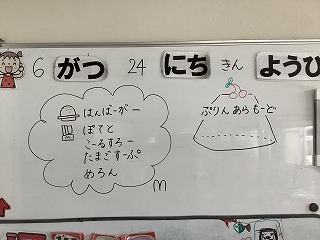 6 がつ 24 にち きん ようひ
はんばーがー
ぽてと
こーるすろー
たまごすーぷ
めろん
ぷりんあらもーど
m